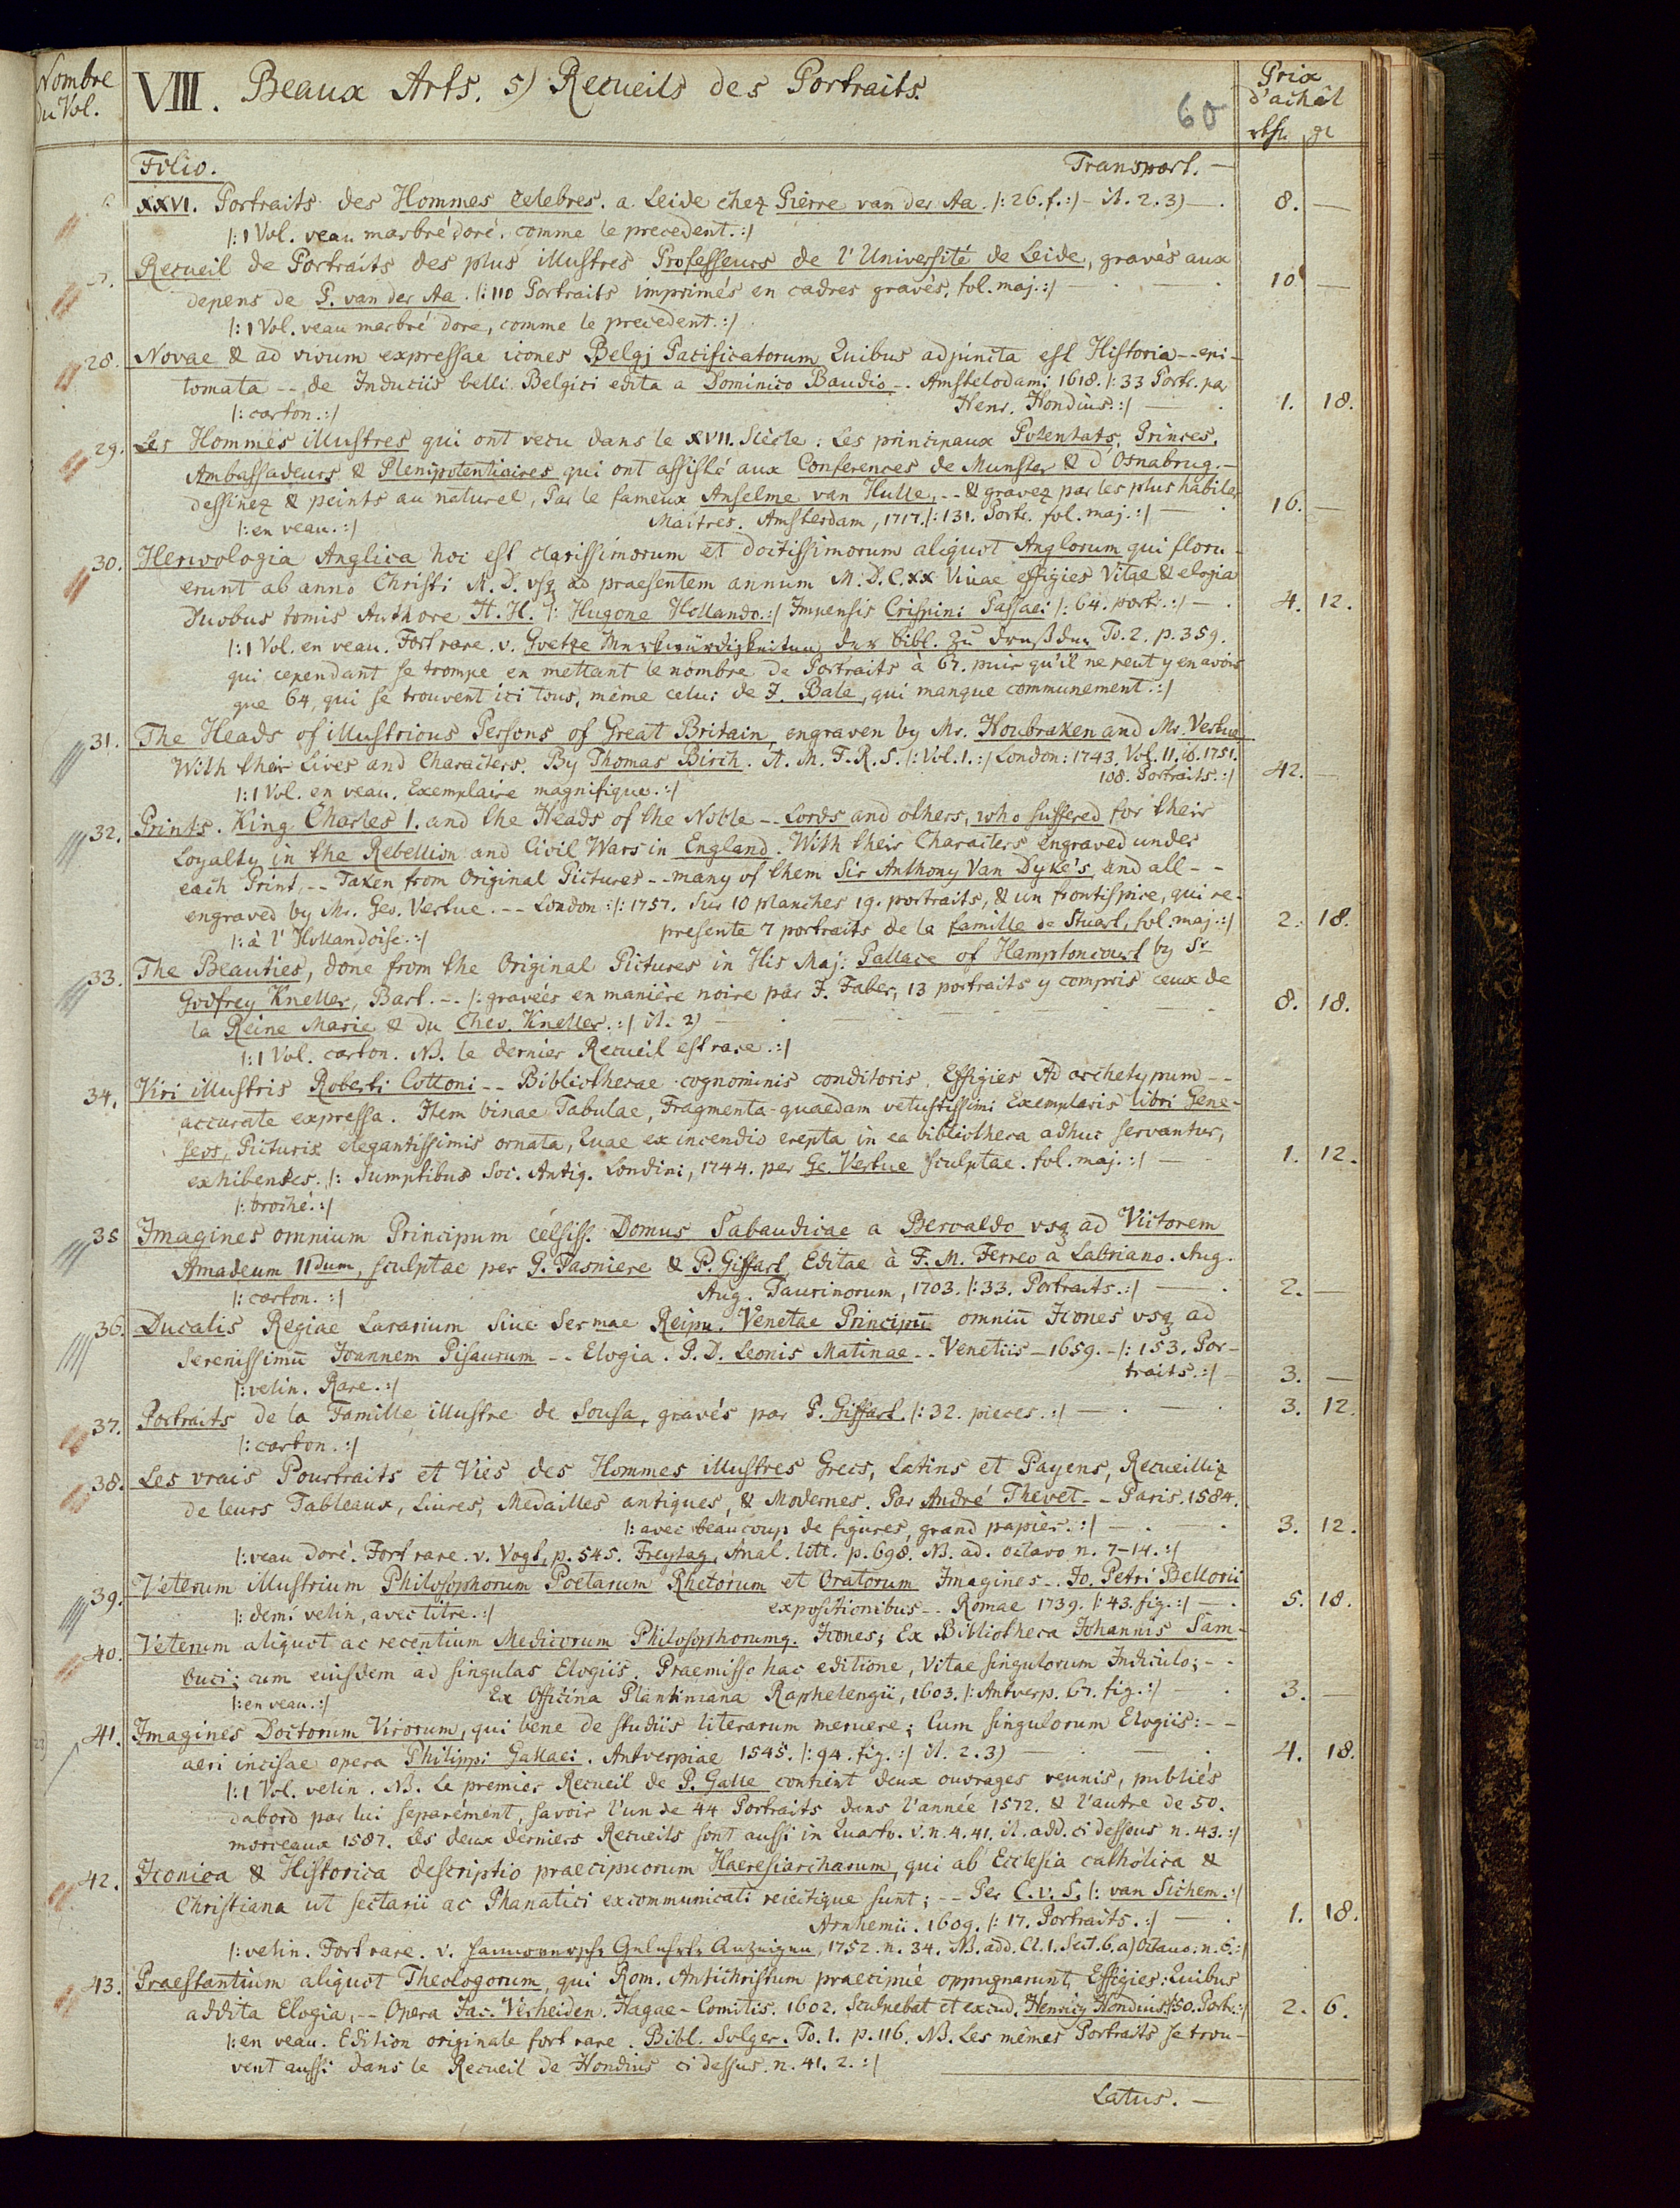 Nombre
du Vol.
VIII. Beaux Arts. 5) Recueils des Portraits.
60
Prix
d'achât
rthr. gr
Folio. Transport. —
XXVI. Portraits des Hommes celebres. a Leide chez Pierre van der Aa. /: 26. f. :/ - it. 2. 3) — . 8. —
/: 1 Vol. veau marbré doré, comme le precedent. :/
Recueil de Portraits des plus illustres Professeurs de l'Université de Leide, gravés aux
depens de P. van der Aa. /: 110 Portraits imprimés en cadres gravés, fol. maj. :/ — 10 —
/: 1 Vol. veau marbré dore, comme le precedent. :/
28. Novae & ad vivum expressae icones Belgj Pacificatorum Quibus adjuncta est Historia -- epi-
tomata -- de Induciis belli Belgici edita a Dominico Baudio -. Amstelodami 1618. /: 33 Portr. par
/: carton. :/ Henr. Hondius. :/ — . 1. 18.
29. Les Hommes illustres qui ont vecu dans le XVII. Siècle: Les principaux Potentats, Princes,
Ambassadeurs & Plenipotentiaires qui ont assisté aux Conferences de Munster & d'Osnabrug. -
dessinez & peints au naturel, Par le fameux Anselme van Hulle, -- & gravez par les plus habiles
/: en veau. :/ Maîtres. Amsterdam, 1717. /: 131. Portr. fol. maj. :/ — . 16. —
30. Herwologia Anglica hoc est clarissimorum et doctissimorum aliquot Anglorum qui floru-
erunt ab anno Christi M. D. vsq ad praesentem annum M. D. C. XX Vivae effigies Vitae & elogia
Duobus tomis Authore H. H. /: Hugone Hollando :/ Impensis Crispini Passaei /: 64. portr. :/ — . 4. 12.
/: 1 Vol. en veau. Fort rare. v. Goetze Merkwürdigkeiten der bibl. zu Dreßden To. 2. p. 359.
qui cependant se trompe en mettant le nombre de Portraits à 67. puis qu'il ne peut y en avoir
que 64, qui se trouvent ici tous, même celui de J. Bale, qui manque communement. :/
31. The Heads of illustrious Persons of Great Britain, engraven by Mr. Houbraken and Mr. Vertue
With their Lives and Characters. By Thomas Birch. A. M. F. R. S. /: Vol. 1. :/ London: 1743. Vol. 11. ib. 1751.
108. Portraits. :/ 42. —
/: 1 Vol. en veau. Exemplaire magnifique. :/
32. Prints. King Charles 1. and the Heads of the Noble -- Lords and others, who suffered for their
Loyalty in the Rebellion and Civil Wars in England. With their Characters engraved under
each Print, -- Taken from Original Pictures -- many of them Sir Anthony Van Dyke's, and all --
engraved by Mr. Geo. Vertue. -- London: /: 1757. Sur 10 planches 19. portraits, & un frontispice, qui re-
/: à l'Hollandoise. :/ presente 7 portraits de la famille de Stuart, fol. maj. :/ 2. 18.
33. The Beauties, done from the Original Pictures in His Maj. Pallace of Hamptoncourt by Sr
Godfrey Kneller, Bart. -. /: gravées en manière noire par J. Faber, 13 portraits y compris ceux de
la Reine Marie & du Chev. Kneller. :/ it. 2) — 8. 18.
/: 1 Vol. carton. NB. le dernier Recueil est rare. :/
34. Viri illustris Roberti Cottoni -- Bibliothecae cognominis conditoris, Effigies Ad archetypum --
accurate expressa. Item binae Tabulae, Fragmenta quaedam vetustissimi Exemplaris libri Gene-
seos, Picturis elegantissimis ornata, Quae ex incendio erepta in ea bibliotheca adhuc servantur,
exhibentes. /: Sumptibus Soc. Antiq. Londini, 1744. per Ge. Vertue sculptae. fol. maj. :/ — 1. 12.
/: broché. :/
35 Imagines omnium Principum celsiss. Domus Sabaudicae a Beroaldo vsq ad Victorem
Amadeum IIdum, sculptae per G. Tasniere & P. Giffart Editae à F. M. Ferrero a Labriano. Aug.
/: carton. :/ Aug. Taurinorum, 1703. /: 33. Portraits. :/ — . 2. —
36. Ducalis Regiae Lararium Siue Sermae Reipu. Venetae Principū omniū Icones vsq ad
Serenissimū Joannem Pisaurum -- Elogia. P. D. Leonis Matinae -- Venetiis - 1659. - /: 153. Por-
/: velin. Rare. :/ traits. :/ — 3. —
37. Portraits de la Famille illustre de Sousa, gravés par P. Giffart. /: 32. pieces. :/ — . — . 3. 12.
/: carton. :/
38. Les vrais Pourtraits et Vies des Hommes illustres Grecs, Latins et Payens, Recueilliz
de leurs Tableaux, Liures, Medailles antiques, & Modernes. Par André Thevet -- Paris. 1584.
/: avec beaucoup de figures, grand papier. :/ — . — . 3. 12.
/: veau doré. Fort rare. v. Vogt, p. 545. Freytag, Anal. litt. p. 698. NB. ad. octavo n. 7-14. :/
39. Veterum illustrium Philosophorum Poetarum Rhetorum et Oratorum Imagines -. Jo. Petri Bellorii
/: demi velin, avec titre. :/ expositionibus -. Romae 1739. /: 43. fig. :/ — . 5. 18.
40. Veterum aliquot ac recentium Medicorum Philosophorumq. Icones; Ex Bibliotheca Johannis Sam-
buci; cum eiusdem ad singulas Elogiis. Praemisso hac editione, Vitae singulorum Indiculo; --
/: en veau. :/ Ex Officina Plantiniana Raphelengii, 1603. /: Antverp. 67. fig. :/ — . 3. —
41. Imagines Doctorum Virorum, qui bene de studiis literarum meruere; Cum singulorum Elogiis: --
aeri incisae opera Philippi Gallaei. Antverpiae 1545. /: 94. fig. :/ it. 2. 3) — . — . 4. 18.
/: 1 Vol. velin. NB. Le premier Recueil de P. Galle contient deux ouvrages reunis, publiés
dabord par lui separément, savoir l'un de 44 Portraits dans l'année 1572. & l'autre de 50.
morceaux 1587. Les deux derniers Recueils sont aussi in Quarto. v. n. 4. 41. it. add. ci dessous n. 43. :/
42. Iconica & Historica descriptio praecipuorum Haeresiarcharum, qui ab Ecclesia catholica &
Christiana ut sectarii ac Phanatici excommunicati reiectique sunt; -- Per C. v. S. /: van Sichem. :/
Arnhemii. 1609. /: 17. Portraits. :/ — . 1. 18.
/: velin. Fort rare. v. Hannoversche Gelehrte Anzeigen, 1752. n. 34. NB. add. Cl. 1. Sect. 6. a) Octavo. n. 6. :/
43. Praestantium aliquot Theologorum, qui Rom. Antichristum praecipué oppugnarunt, Effigies: Quibus
addita Elogia, -- Opera Jac. Verheiden. Hagae-Comitis. 1602. Sculpebat et excud. Henricq Hondius. /: 50. Portr. :/ 2. 6.
/: en veau. Edition originale fort rare. Bibl. Solger. To. 1. p. 116. NB. Les mêmes Portraits se trou-
vent aussi dans le Recueil de Hondius ci dessus. n. 41. 2. :/
Latus. —